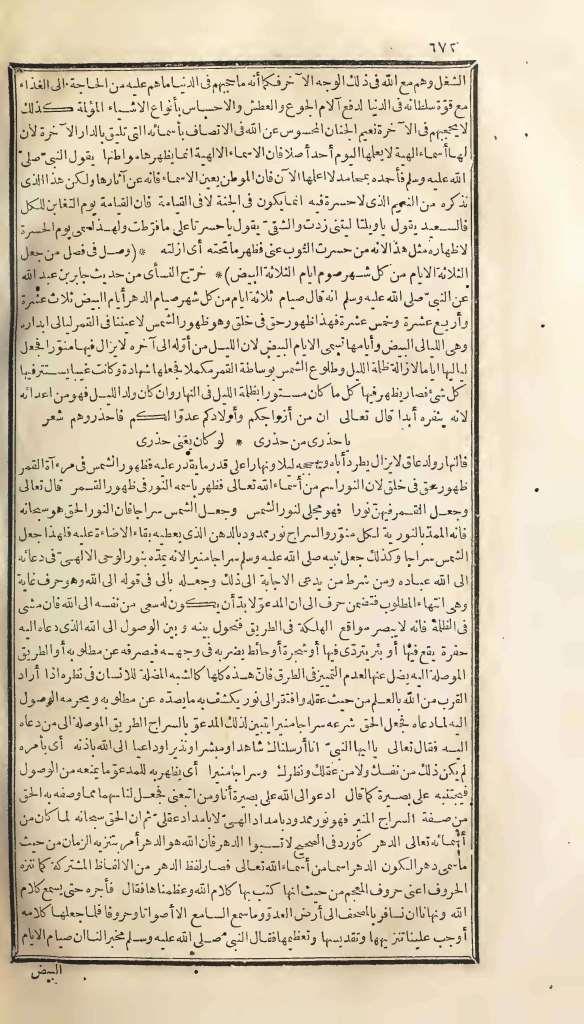 ٦٧٢
الشغل وهم مع الله فى ذلك الوجه الآخر فكما أنه ما حجبهم فى الدنيا ما هم عليه من الحاجة الى الغذاء
مع قوّة سلطانه فى الدنيا لدفع آلام الجوع والعطش والاحساس بأنواع الاشياء المؤلمة كذلك
لا يحجبهم فى الآخرة نعيم الجنان المحسوس عن الله فى الاتصاف بأسمائه التى تليق بالدار الآخرة لأن
لها أسماء الهية لا يعلمها اليوم أحد أصلا فان الاسماء الالهية انما يظهرها مواطنها يقول النبى صلى
الله عليه وسلم فأحمده بمحامد لا اعلمها الآن فان الموطن يعين الاسماء فانه عن آثارها ولكن هذا الذى
نذكره من النعيم الذى لا حسرة فيه انما يكون فى الجنة لا فى القيامة فان القيامة يوم التغابن للكل
فالسعيد يقول يا ويلتا ليتنى زدت والشقىّ يقول يا حسرتا على ما فرّطت ولهذا سمى يوم الحسرة
لاظهاره مثل هذا لانه من حسرت الثوب عنى فظهر ما تحته أى ازلته * (وصل فى فصل من جعل
الثلاثة الايام من كل شهر صوم ايام الثلاثة البيض) * خرّج النسأى من حديث جابر بن عبد الله
عن النبىّ صلى الله عليه وسلم انه قال صيام ثلاثة ايام من كل شهر صيام الدهر أيام البيض ثلاث عشرة
وأربع عشرة وخمس عشرة فهذا ظهور حق فى خلق وهو ظهور الشمس لاعيننا فى القمر ليالى ابداره
وهى الليالى البيض وأيامها تسمى الايام البيض لان الليل من أوّله الى آخره لا يزال فيها منوّرا فجعل
لياليها اياما لازالة ظلمة الليل وطلوع الشمس بوساطة القمر مكملا فجعلها شهادة وكانت غيبا يستتر فيها
كل شىء فصار يظهر فيها كل ما كان مستورا بظلمة الليل فى النهار وان كان ولد الليل فهو من اعدائه
لانه ينفره أبدا قال تعالى ان من أزواجكم وأولادكم عدوّا لكم فاحذروهم شعر
يا حذرى من حذرى * لو كان يغنى حذرى
فالنهار ولد عاق لا يزال يطرد أباه ليلا ونهارا على قدر ما يقدر عليه فظهور الشمس فى مرءآة القمر
ظهور حق فى خلق لان النور اسم من أسماء الله تعالى فظهر باسمه النور فى ظهور القمر قال تعالى
وجعل القمر فيهنّ نورا فهو مجلى لنور الشمس وجعل الشمس سراجا فان النور الحق هو سبحانه
فانه الممدّ بالنورية لكل منوّر والسراج نور ممدود بالدهن الذى يعطيه بقاء الاضاءة عليه فلهذا جعل
الشمس سراجا وكذلك جعل نبيه صلى الله عليه وسلم سراجا منيرا لانه يمدّه بنور الوحى الالهىّ فى دعائه
الى الله عباده ومن شرط من يدعى الاجابة الى ذلك وجعله بالى فى قوله الى الله وهو حرف غاية
وهى انتهاء المطلوب فتضمن حرف الى ان المدعوّ لا بدّ أن يكون له سعى من نفسه الى الله فان مشى
فى الظلمة فانه لا يبصر مواقع الهلكة فى الطريق فتحول بينه وبين الوصول الى الله الذى دعاه اليه
حفرة يقع فيها أو بئر يتردّى فيها أو شجرة أو حائط يضربه فى وجهه فيصرفه عن مطلوبه أو الطريق
الموصلة اليه يضل عنها لعدم التمييز فى الطرق فانّ هذه كلها كالشبه المضلة للانسان فى نظره اذا أراد
القرب من الله بالعلم من حيث عقله وافتقر الى نور يكشف به ما يصدّه عن مطلوبه ويحرمه الوصول
اليه لما دعاه فجعل الحق شرعه سراجا منيرا يتبين لذلك المدعوّ بالسراج الطريق الموصلة الى من دعاه
اليه فقال تعالى يا ايها النبىّ انا أرسلناك شاهدا ومبشرا ونذيرا وداعيا الى الله باذنه أى بأمره
لم يكن ذلك من نفسك ولا من عقلك ونظرك وسراجا منيرا أى يظهر به للمدعوّ ما يمنعه من الوصول
فيجتنبه على بصيرة كما قال ادعو الى الله على بصيرة أنا ومن اتبعنى فجعل لنا سهما مما وصفه به الحق
من صفة السراج المنير فهو نور ممدود بامداد الهىّ لا بامداد عقلىّ ثم ان الحق سبحانه لما كان من
أسمائه تعالى الدهر كما ورد فى الصحيح لا تسبوا الدهر فان الله هو الدهر أمر بتنزيه الزمان من حيث
ما سمى دهرا لكون الدهر اسما من أسماء الله تعالى فصار لفظ الدهر من الالفاظ المشتركة كما تنزه
الحروف اعنى حروف المعجم من حيث انها كتب بها كلام الله وعظمناها فقال فأجره حتى يسمع كلام
الله ونهانا ان نسافر بالمصحف الى أرض العدوّ وما سمع السامع الا أصواتا وحروفا فلما جعلها كلامه
أوجب علينا تنزيهها وتقديسها وتعظيمها فقال النبىّ صلى الله عليه وسلم مخبرا لنا ان صيام الايام
البيض